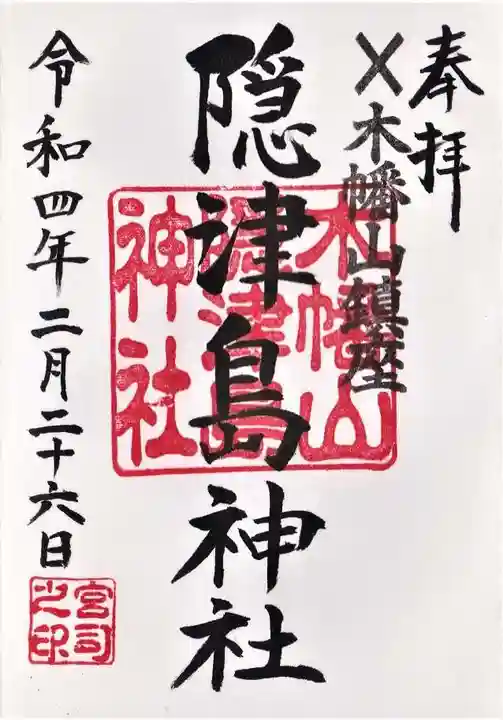 奉拝
〆木幡山鎮座
隠津島神社
木幡山
隠津島
神社
令和四年二月二十六日
宮司
之印